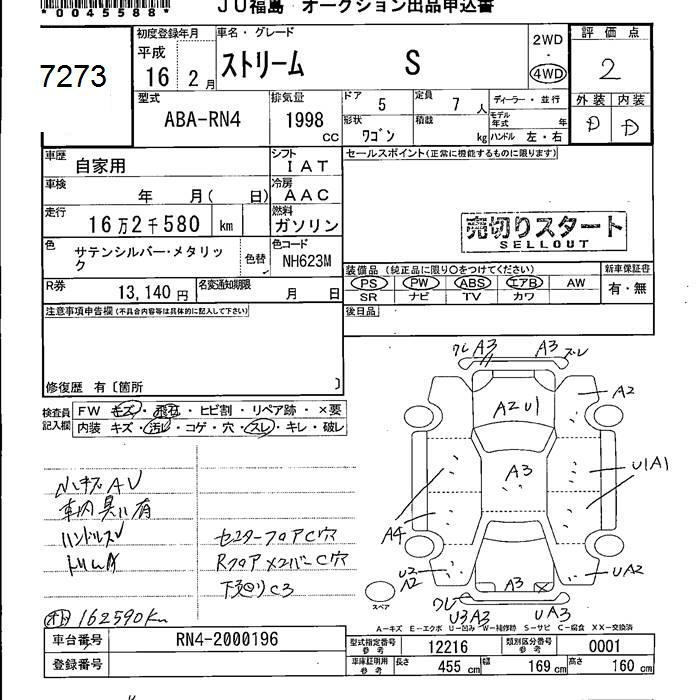 JU福島 オークション出品申込書
*0045588*
7273
初度登録年月
平成
16 2月
車名・グレード
ストリーム S
2WD
・
4WD
評価点
2
外装 内装
D D
型式
ABA-RN4
排気量
1998
cc
ドア 5
定員 7 人
ディーラー・並行
形状 ワゴン
積載 kg
モデル年式 年
ハンドル 左・右
車歴
自家用
シフト
IAT
セールスポイント(正常に機能するものに限ります)
車検
年 月( 日)
冷房
AAC
走行
16万2千580 km
燃料
ガソリン
売切りスタート
SELLOUT
色
サテンシルバー・メタリック
色替
色コード
NH623M
装備品(純正品に限り○をつけてください)
新車保証書
PS PW ABS エアB AW
有・無
SR ナビ TV カワ
R券
13,140円
名変通知期限
月 日
後日品
注意事項申告欄(不具合内容等は具体的に記入して下さい)
修復歴 有〔箇所 〕
検査員
記入欄
FW キズ・飛石・ヒビ割・リペア跡・×要
内装 キズ・汚れ・コゲ・穴・スレ・キレ・破レ
ワレ A3 A3 ズレ
A2
A2U1
A3
U1A1
A4
U2
A2
UA2
A3
ワレ
U3A3
UA3
スペア
小キズAU
車内臭い有
ハンドルスレ
センターフロアC穴
RフロアメンバーC穴
下廻りC3
162590Km
A−キズ E−エクボ U−凹み W−補修跡 S−サビ C−腐食 XX−交換済
車台番号
RN4-2000196
登録番号
型式指定番号
参考
12216
類別区分番号
参考
0001
車庫証明用
参考
長さ 455 cm
幅 169 cm
高さ 160 cm